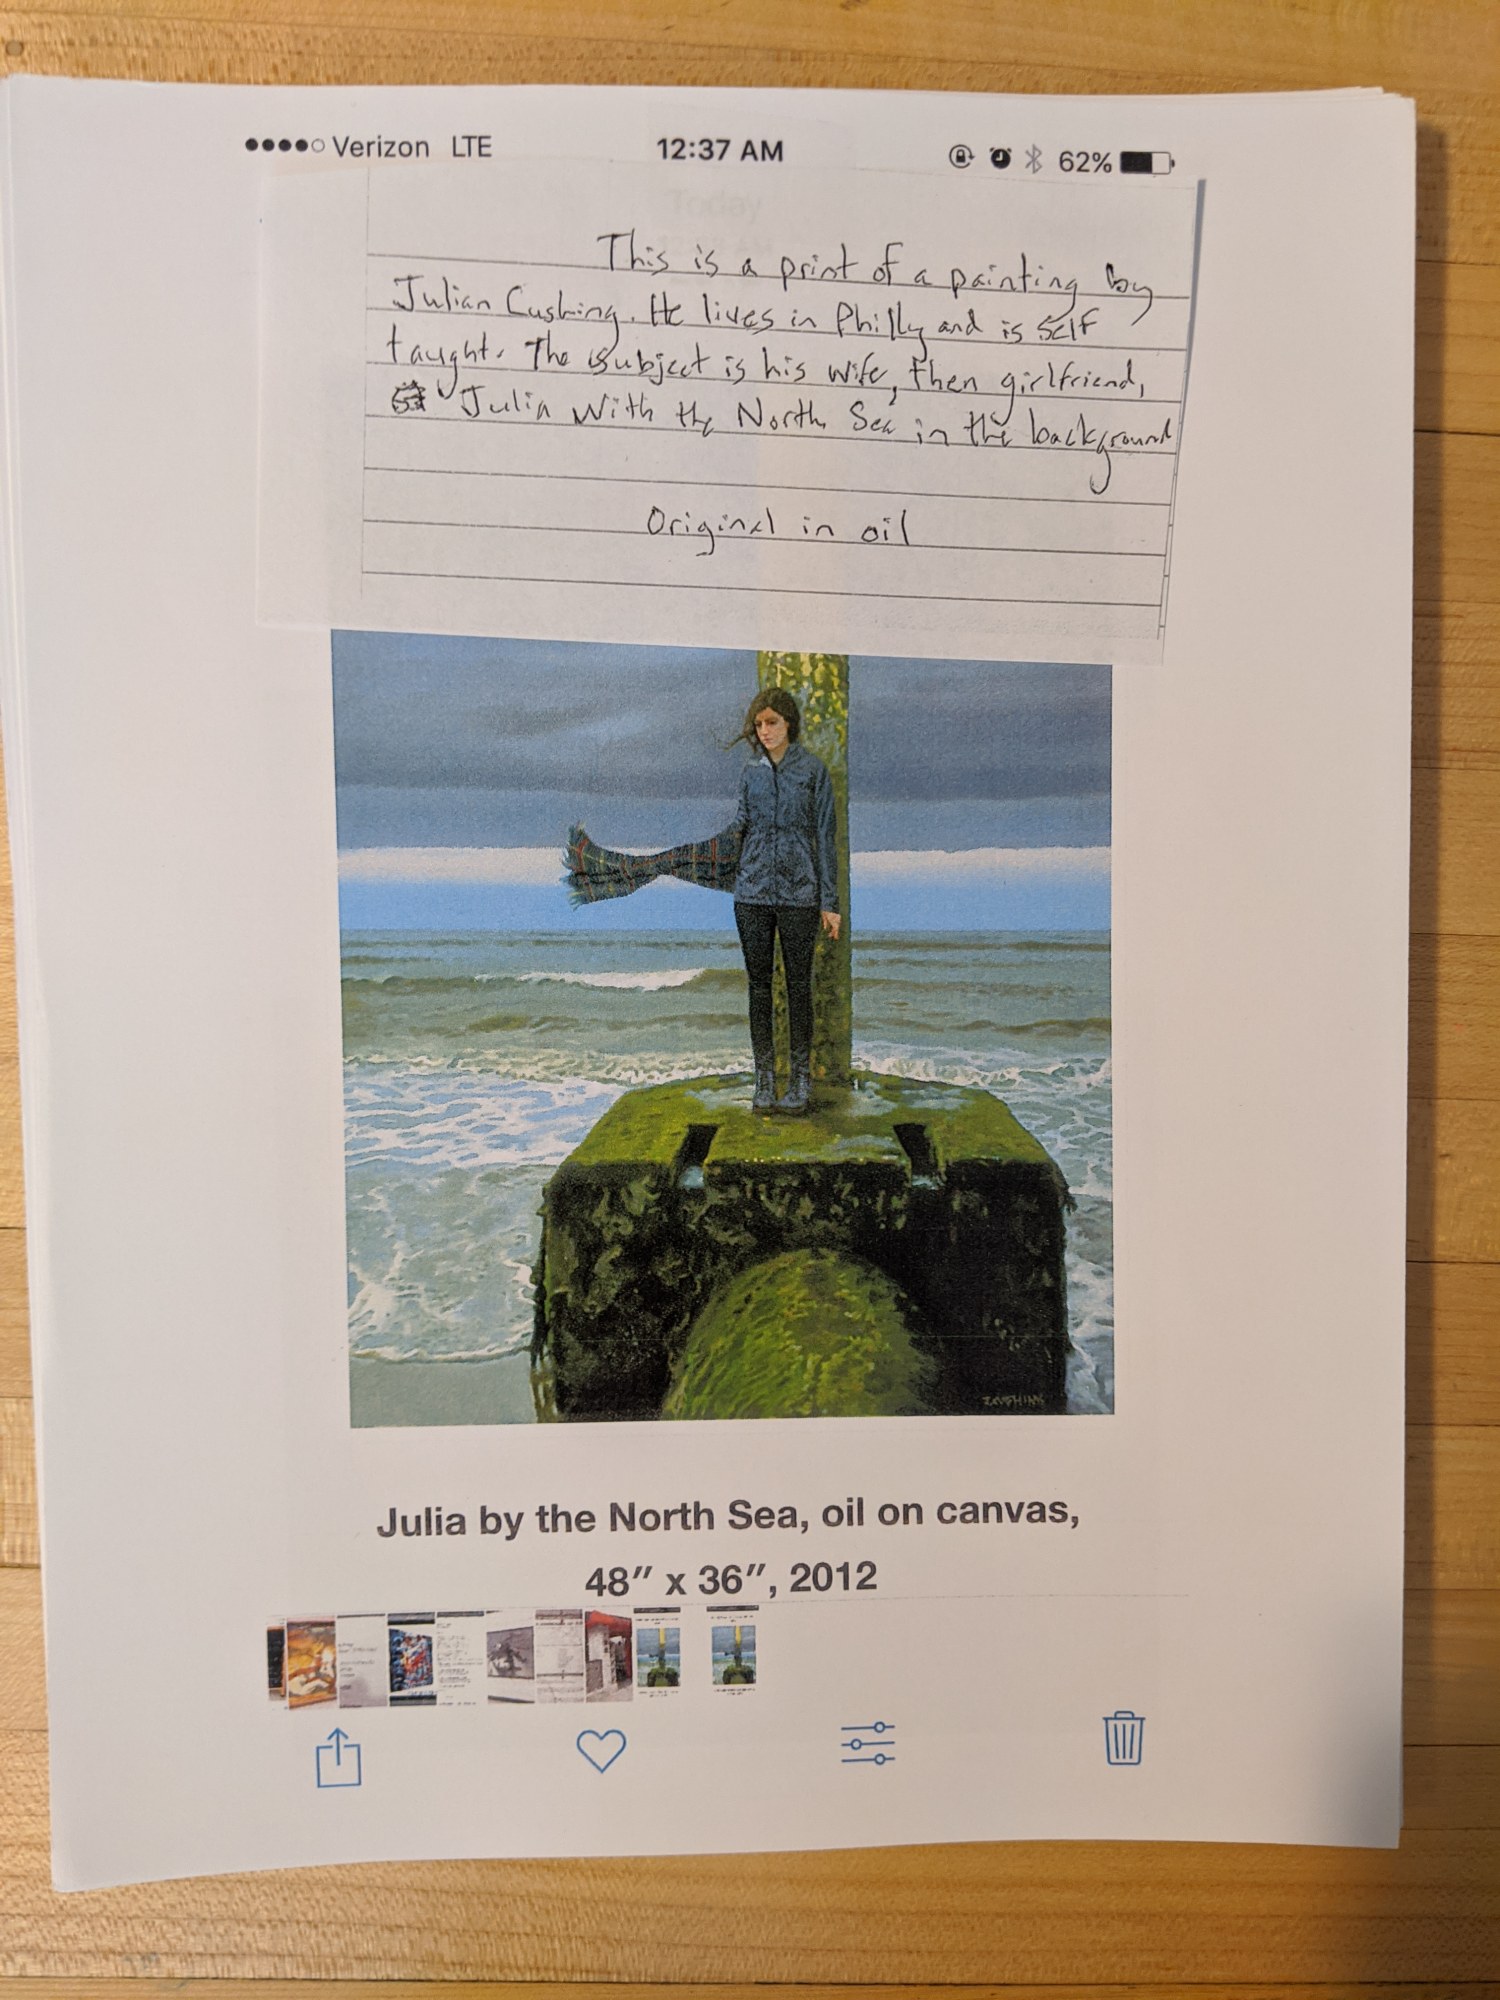 Verizon LTE 12:37 AM 62%
Today
This is a print of a painting by
Julian Cushing. He lives in Philly and is self
taught. The subject is his wife, then girlfriend,
Julia with the North Sea in the background
Original in oil
Julia by the North Sea, oil on canvas,
48″ x 36″, 2012